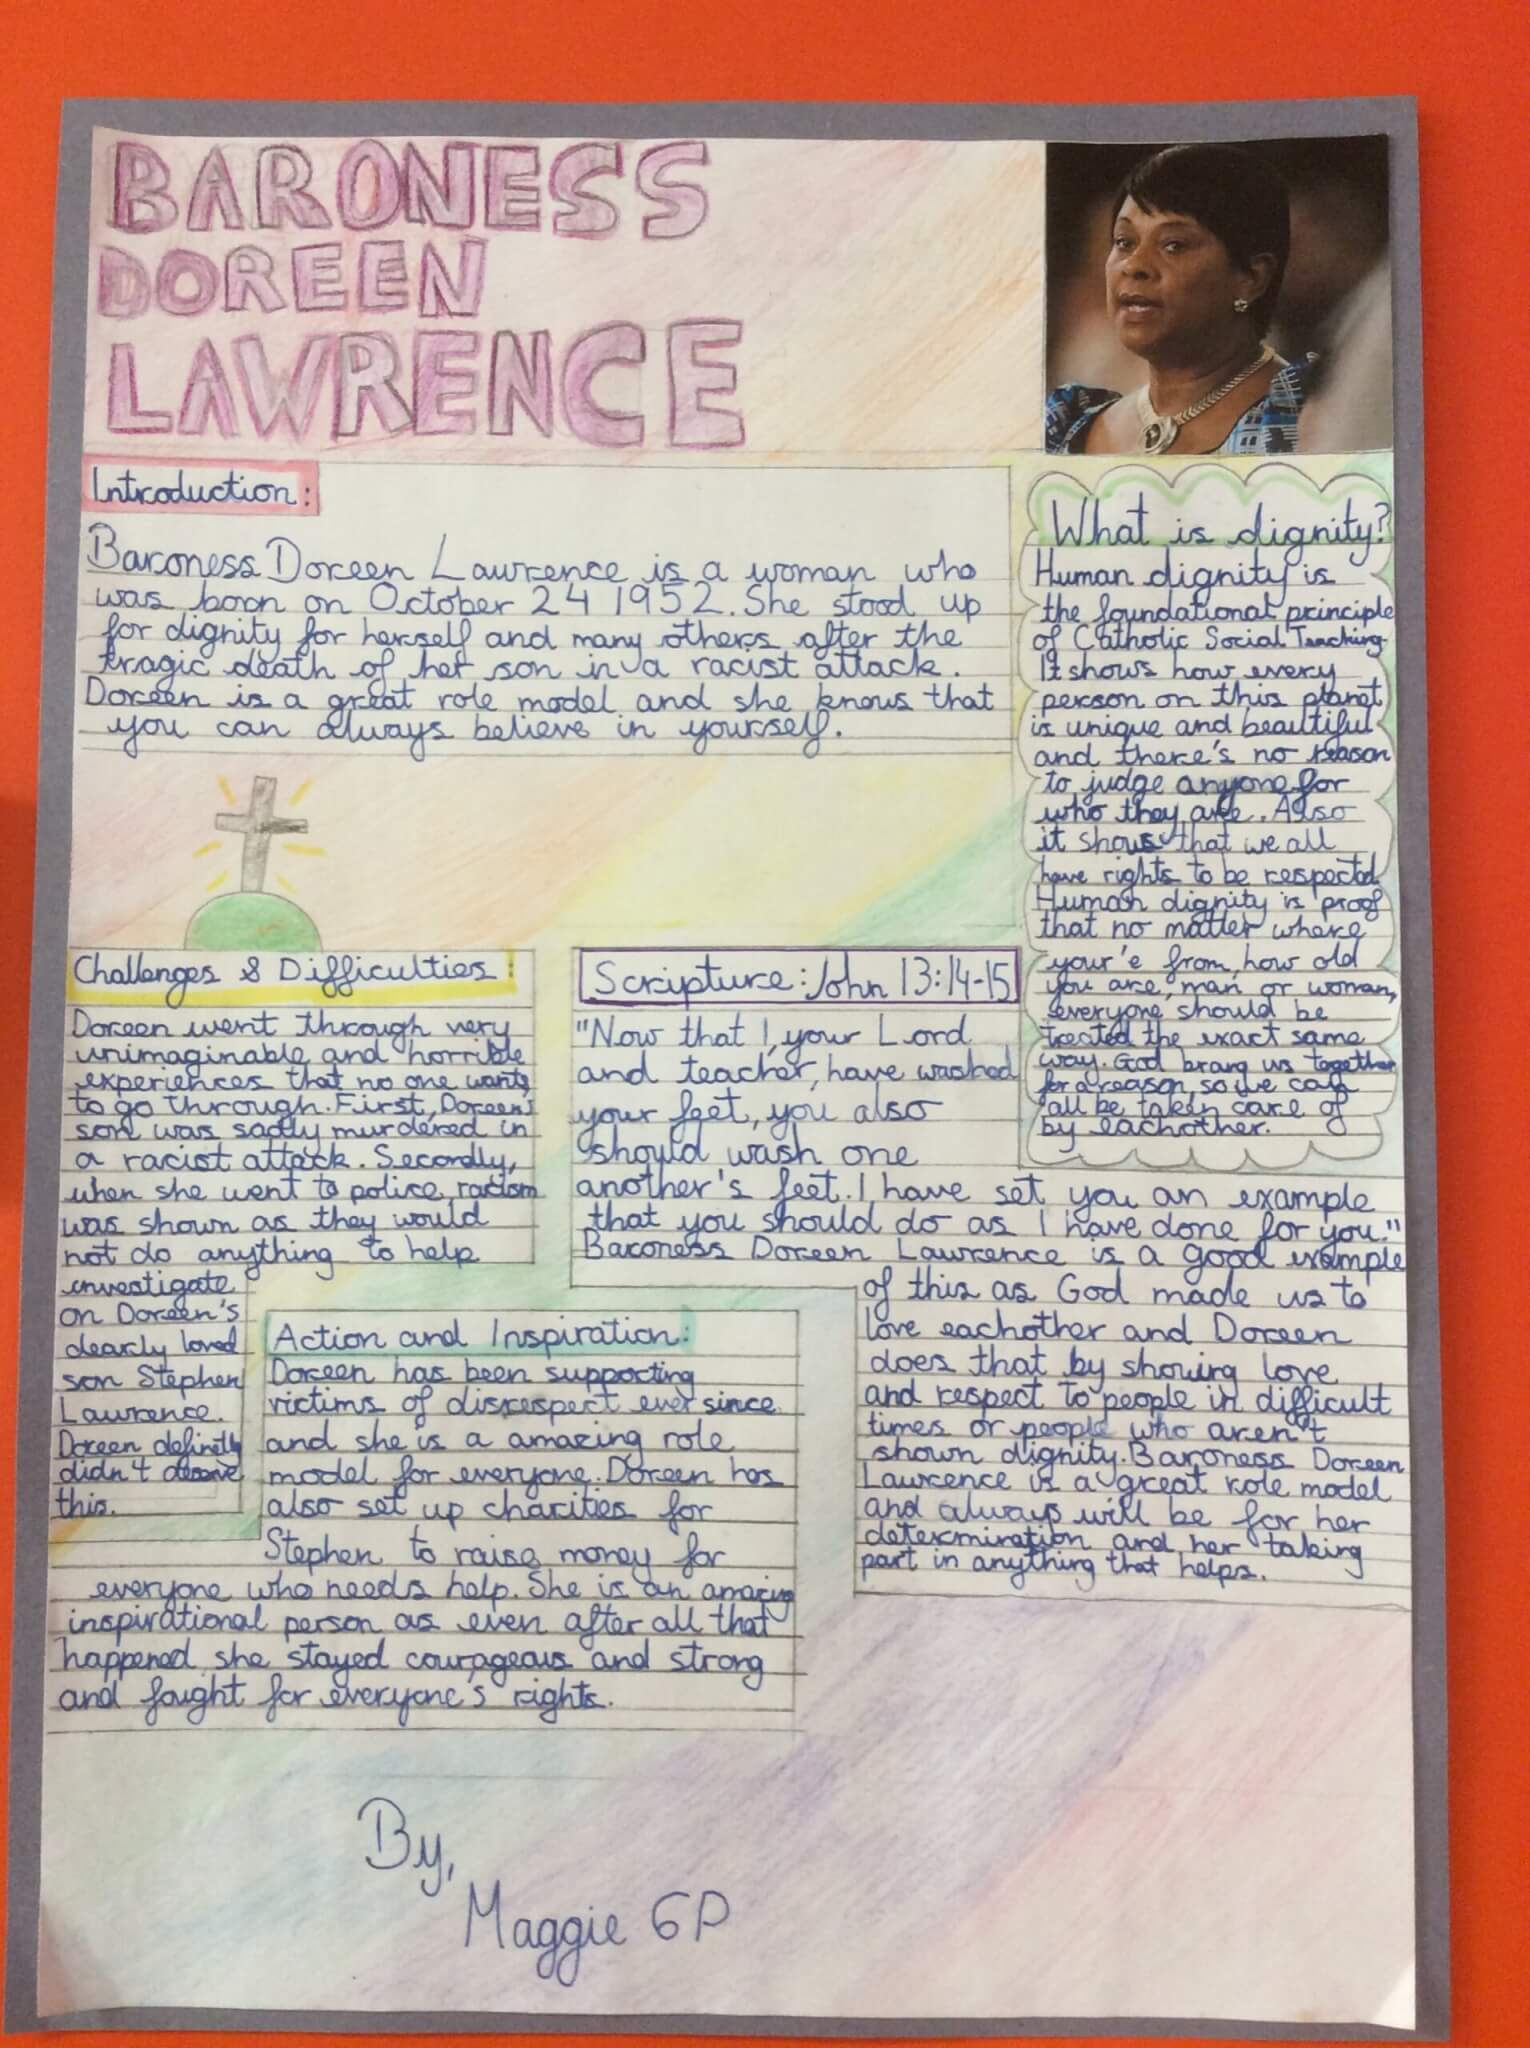 BARONESS
DOREEN
LAWRENCE
Introduction:
Baroness Doreen Lawrence is a woman who
was born on October 24 1952. She stood up
for dignity for herself and many others after the
tragic death of her son in a racist attack.
Doreen is a great role model and she knows that
you can always believe in yourself.
What is dignity?
Human dignity is
the foundational principle
of Catholic Social Teaching.
It shows how every
person on this planet
is unique and beautiful
and there's no reason
to judge anyone for
who they are. Also
it shows that we all
have rights to be respected
Human dignity is proof
that no matter where
your'e from, how old
you are, man or woman,
everyone should be
treated the exact same
way. God brang us together
for a reason, so we can
all be taken care of
by eachother.
Challenges & Difficulties:
Doreen went through very
unimaginable and horrible
experiences that no one wants
to go through. First, Doreen's
son was sadly murdered in
a racist attack. Secondly,
when she went to police, racism
was shown as they would
not do anything to help
investigate
on Doreen's
dearly loved
son Stephen
Lawrence.
Doreen definetly
didn't deserve
this.
Scripture: John 13:14-15
"Now that I, your Lord
and teacher, have washed
your feet, you also
should wash one
another's feet. I have set you an example
that you should do as I have done for you."
Baroness Doreen Lawrence is a good example
of this as God made us to
love eachother and Doreen
does that by showing love
and respect to people in difficult
times or people who aren't
shown dignity. Baroness Doreen
Lawrence is a great role model
and always will be for her
determination and her taking
part in anything that helps.
Action and Inspiration:
Doreen has been supporting
victims of disrespect ever since
and she is a amazing role
model for everyone. Doreen has
also set up charities for
Stephen to raise money for
everyone who needs help. She is an amazing
inspirational person as even after all that
happened she stayed courageous and strong
and fought for everyone's rights.
By,
Maggie 6P